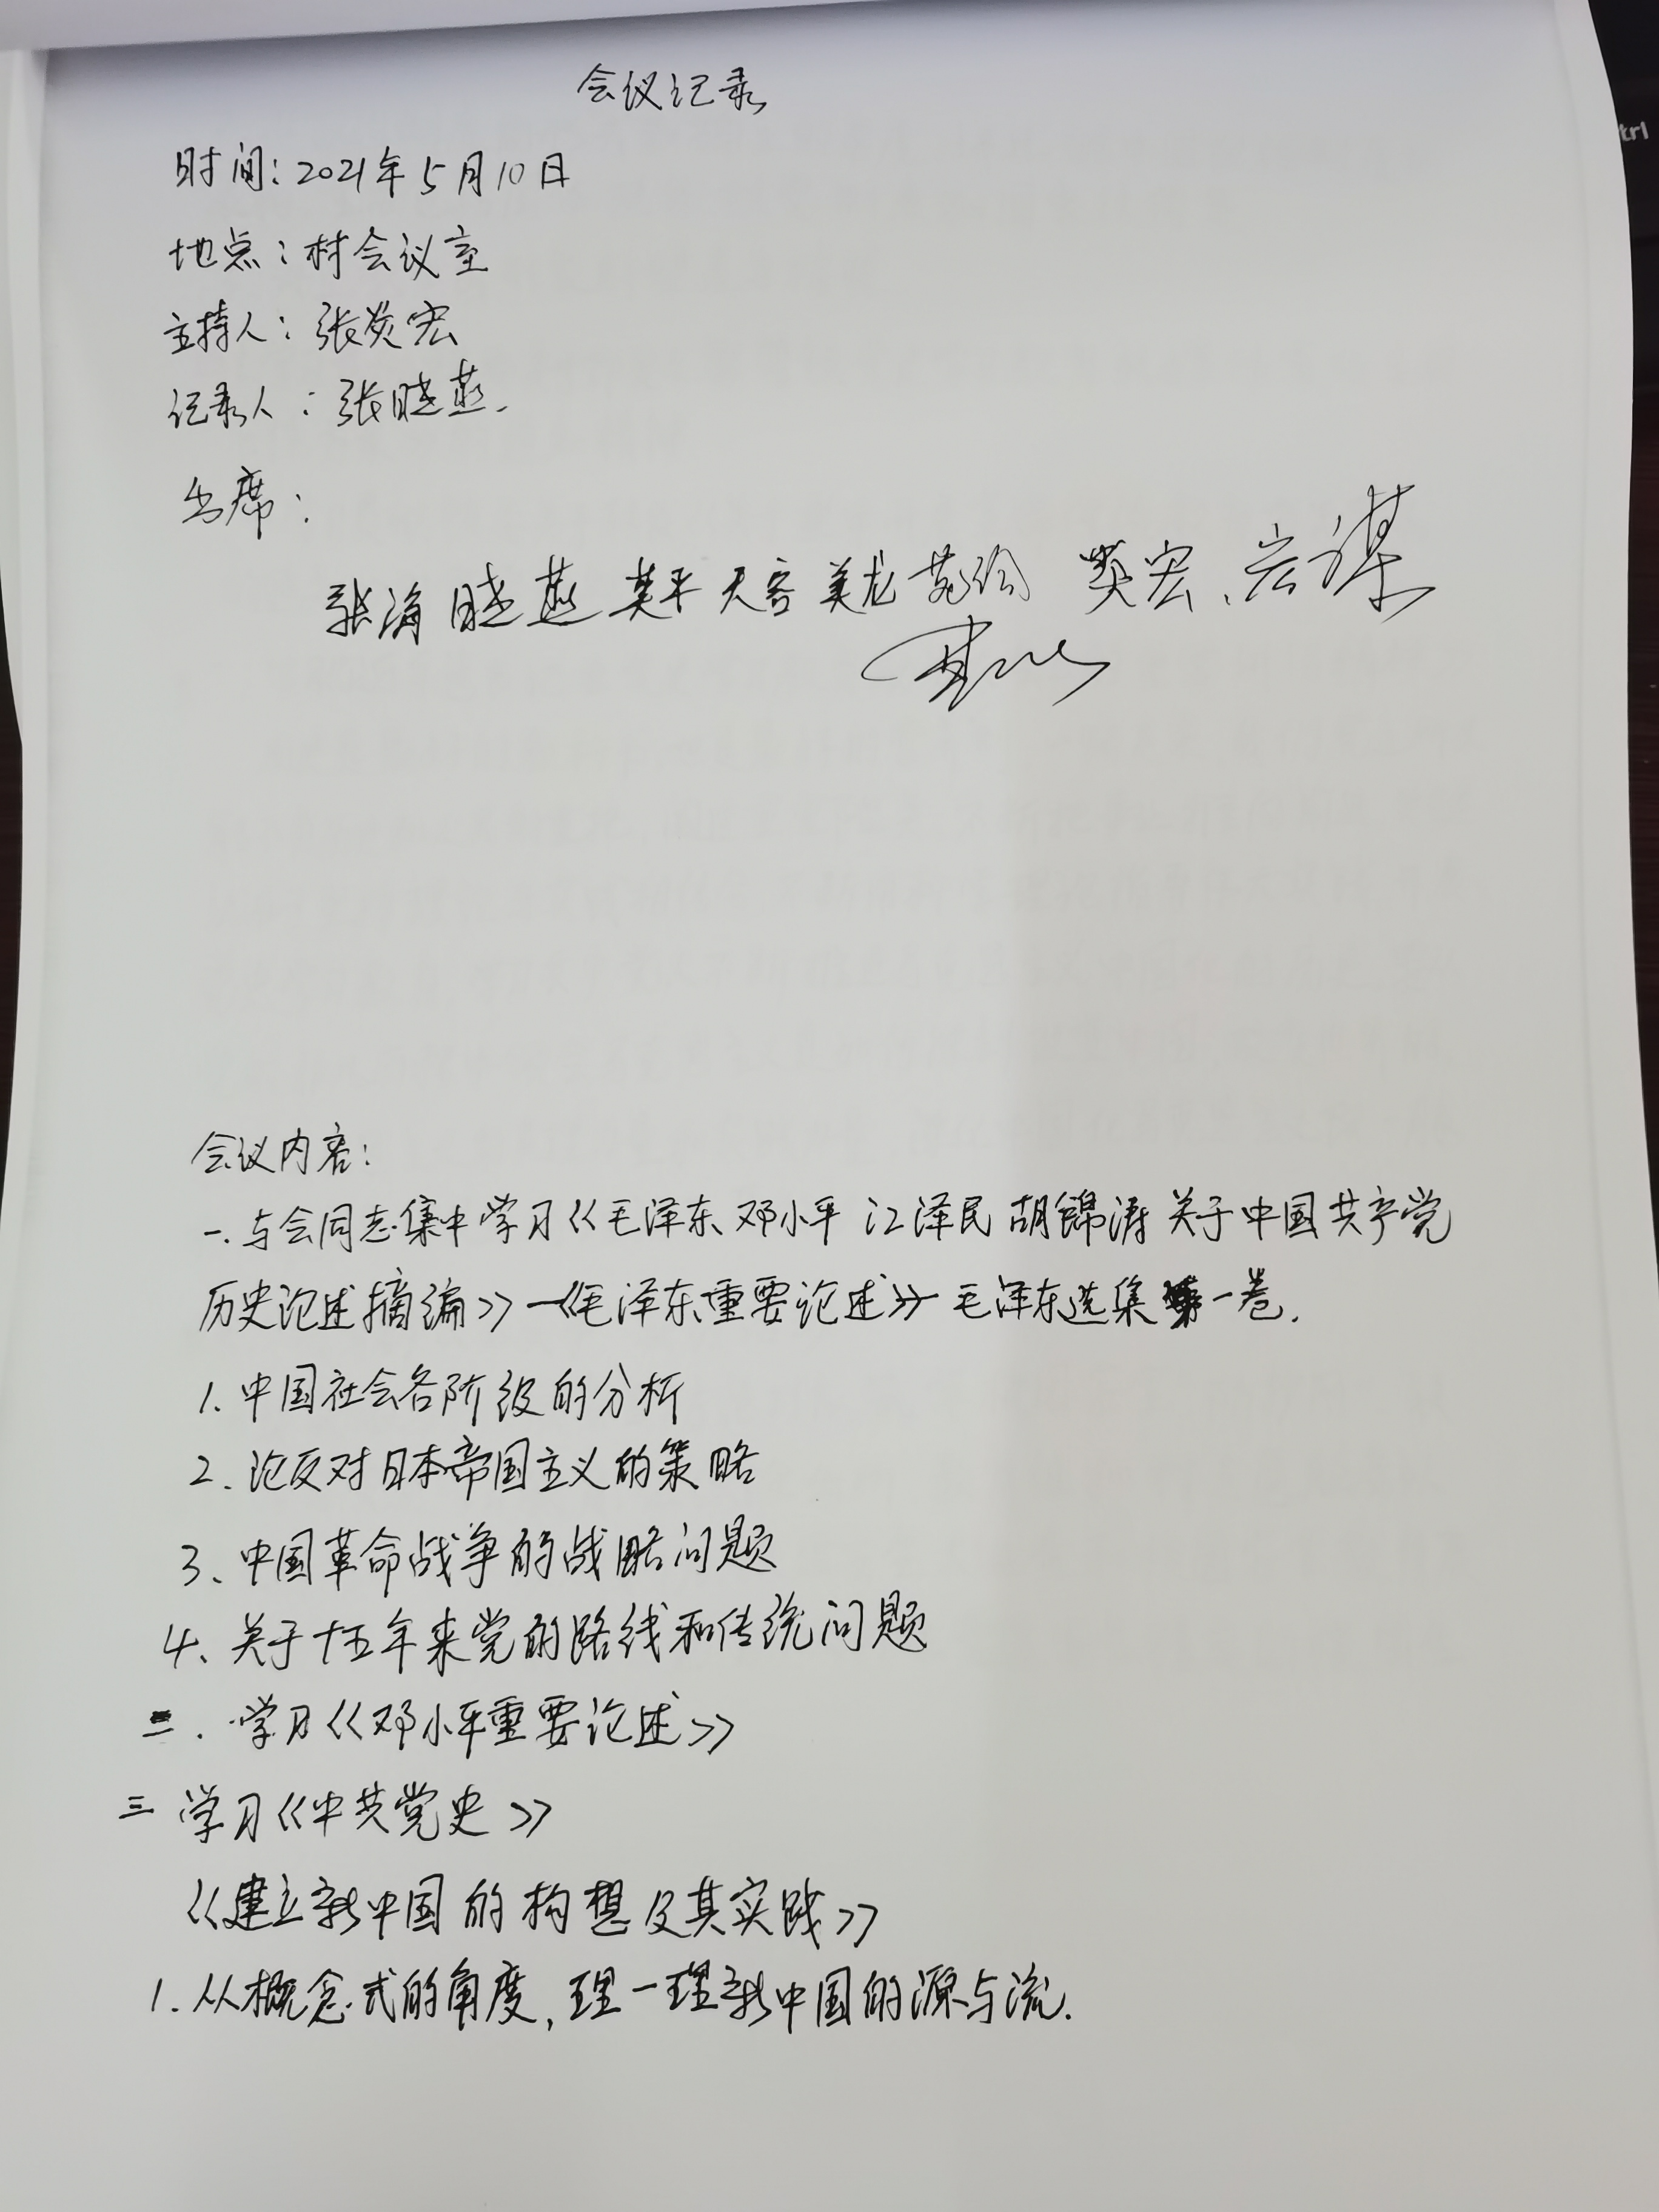 会议记录
时间：2021年5月10日
地点：村会议室
主持人：张炎宏
记录人：张晓燕.
出席：
张海 晓燕 美平 天客 美龙 宏谋
会议内容：
一.与会同志集中学习《毛泽东 邓小平 江泽民 胡锦涛 关于中国共产党
历史论述摘编》—《毛泽东重要论述》—毛泽东选集第一卷.
1.中国社会各阶级的分析
2.论反对日本帝国主义的策略
3、中国革命战争的战略问题
4、关于十五年来党的路线和传统问题
二.学习《邓小平重要论述》
三 学习《中共党史》
《建立新中国的构想及其实践》
1.从概念式的角度，理一理新中国的源与流.
trl